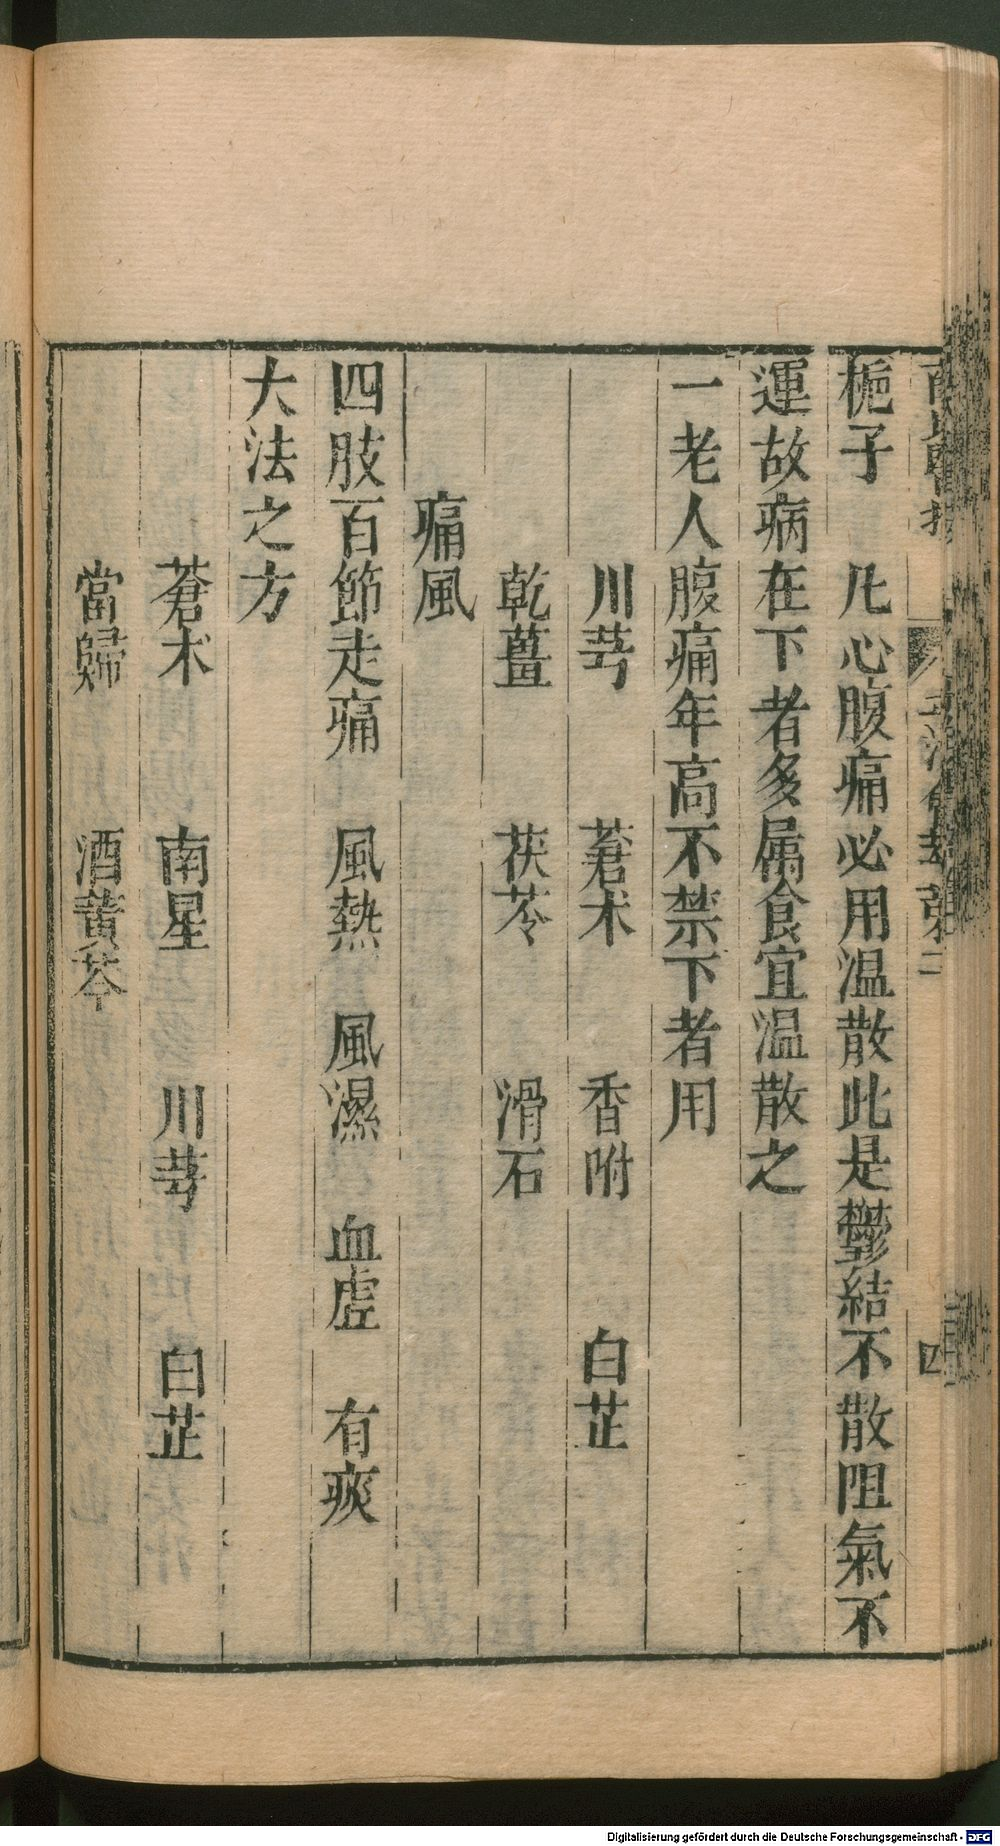 梔子　凡心腹痛必用温散此是鬱結不散阻氣不
運故病在下者多属食宜温散之
一老人腹痛年高不禁下者用
川芎　蒼术　香附　白芷
乾薑　茯苓　滑石
痛風
四肢百節走痛　風熱　風濕　血虚　有痰
大法之方
蒼术　南星　川芎　白芷
當歸　酒黄芩
四
Digitalisierung gefördert durch die Deutsche Forschungsgemeinschaft - DFG